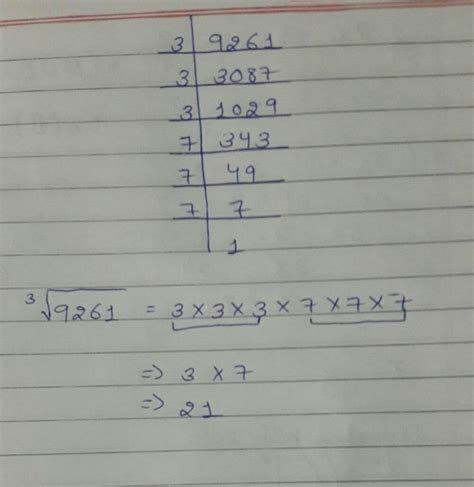 3 | 9261
3 | 3087
3 | 1029
7 | 343
7 | 49
7 | 7
| 1
∛9261 = 3 × 3 × 3 × 7 × 7 × 7
=> 3 × 7
=> 21